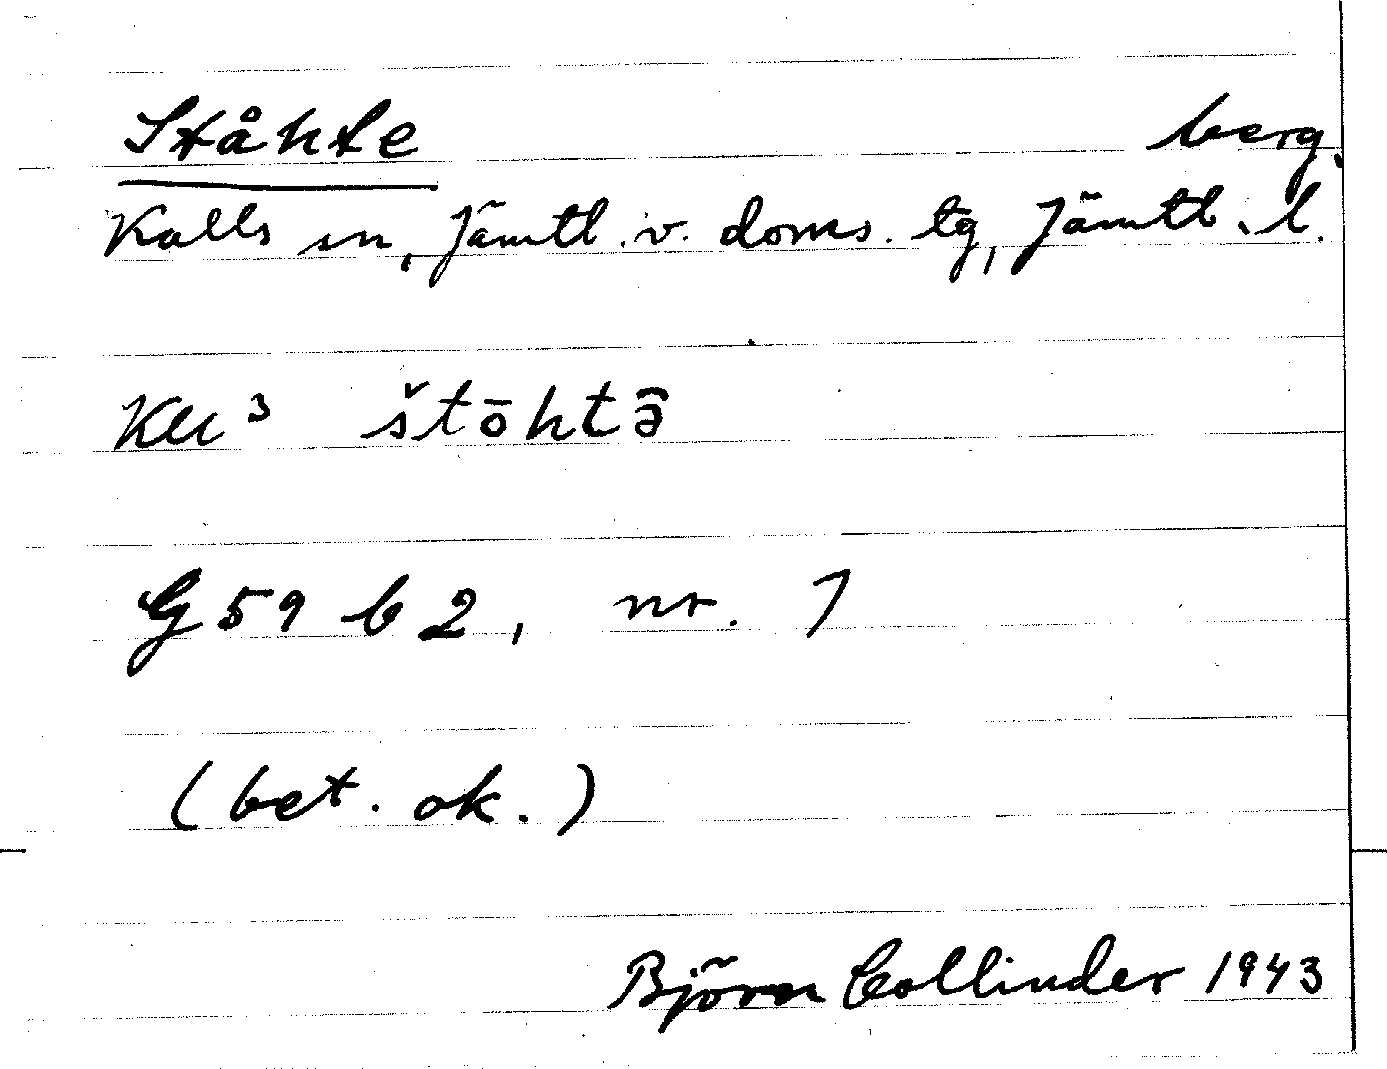 Ståhte berg.
Kalls sn, Jämtl. v. doms. tg, Jämtl. l.
Kll³ štōhtə̑
G 59 b 2, nr. 7
(bet. ok.)
Björn Collinder 1943